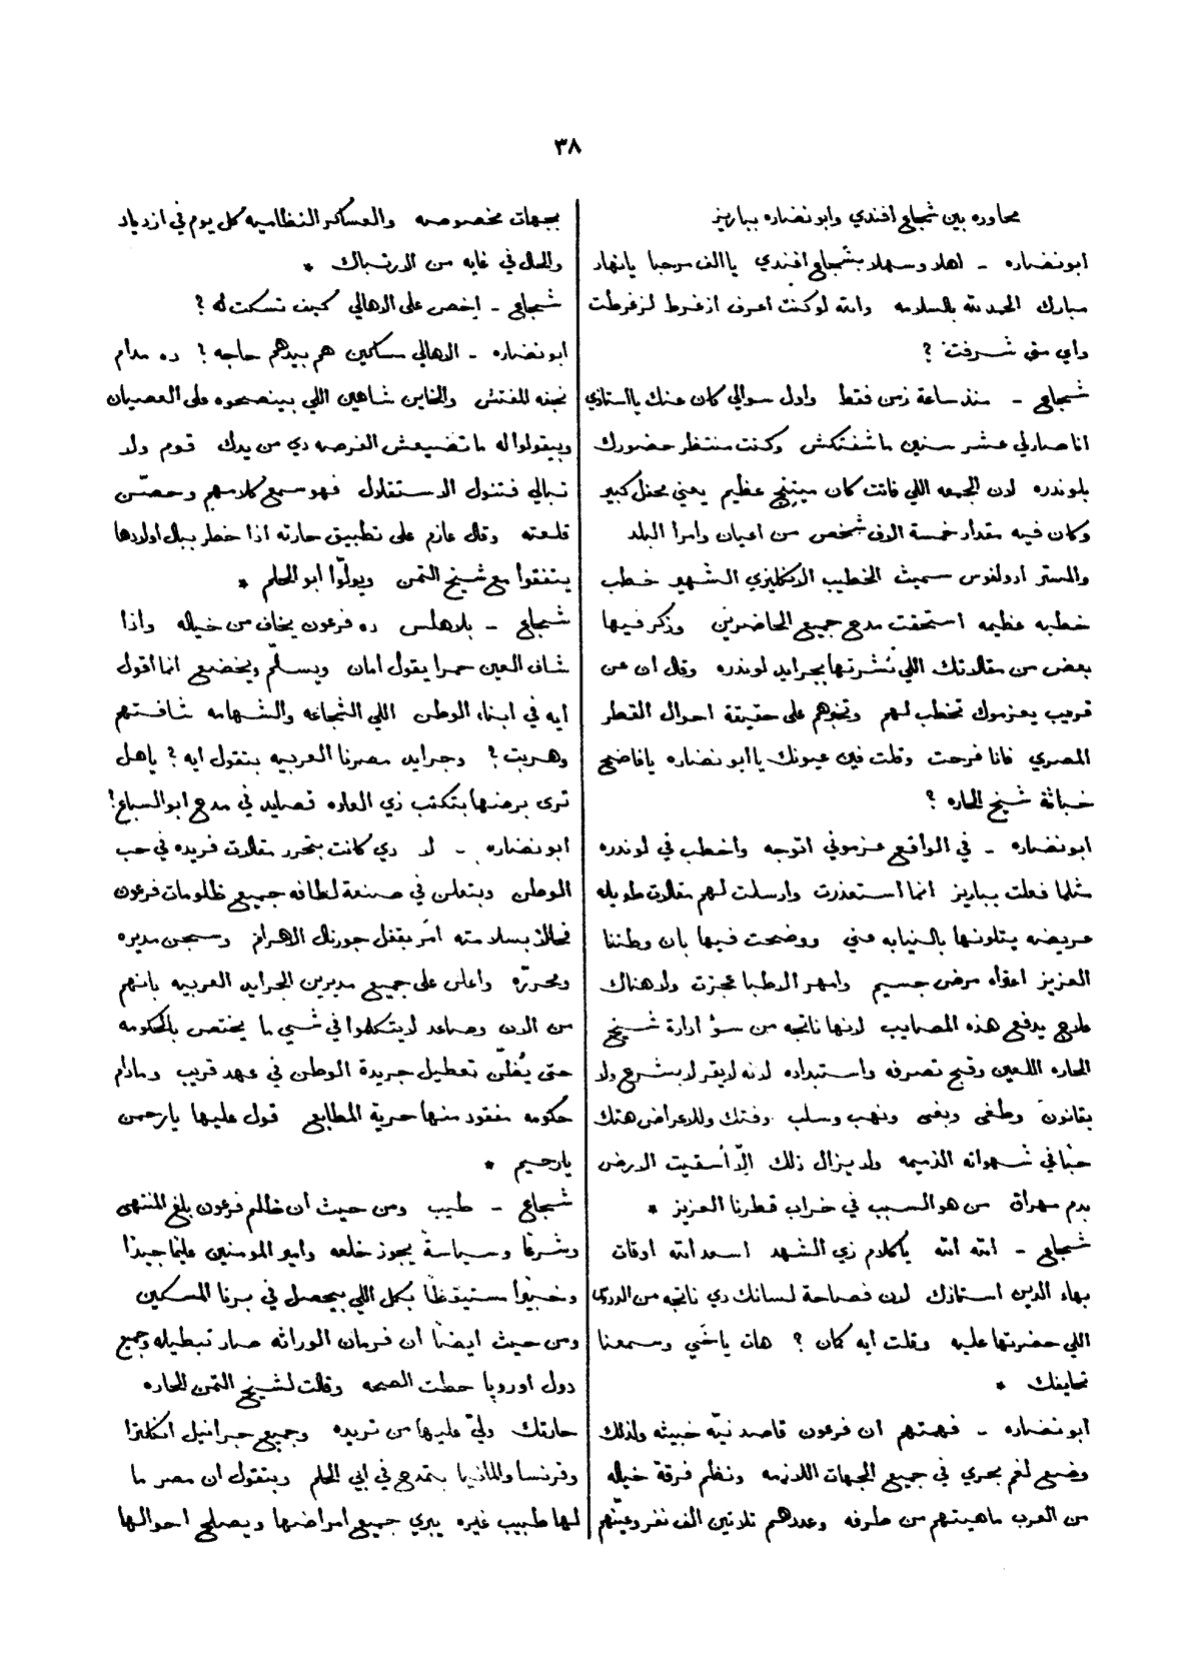 ٣٨
محاوره بين شجاع افندي وابو نضاره بباريز
ابو نضاره - اهلا وسهلا بشجاع افندي يا الف مرحبا يا نهار
مبارك الحمد لله بالسلامه والله لو كنت اعرف ازغرط لزغرطت
واي متى شرفت ؟
شجاع - منذ ساعة زمن فقط واول سوالي كان عنك يا استاذي
انا صارلي عشر سنين ما شفتكش وكنت منتظر حضورك
بلوندره لان الجمعه اللي فاتت كان ميتنج عظيم يعني محفل كبير
وكان فيه مقدار خمسة الاف شخص من اعيان وامرا البلد
والمستر ادولفوس سميث الخطيب الانكليزي الشهير خطب
خطبه عظيمه استحقت مدح جميع الحاضرين وذكر فيها
بعض من مقالاتك اللي نشرتها بجرايد لوندره وقال ان عن
قريب يعزموك تخطب لهم وتخبرهم على حقيقة احوال القطر
المصري فانا فرحت وقلت فين عيونك يا ابو نضاره يا فاضح
خباثة شيخ الحاره ؟
ابو نضاره - في الواقع عزموني اتوجه واخطب في لوندره
مثلما فعلت بباريز انما استعذرت وارسلت لهم مقالات طويله
عريضه يتلونها بالنيابه عني ووضحت فيها بان وطننا
العزيز اعتراه مرض جسيم وامهر الاطبا عجزت ولا هناك
علاج يدفع هذه المصايب لانها ناتجه من سؤ ادارة شيخ
الحاره اللعين وقبح تصرفه واستبداده لانه لا يقر لا بشرع ولا
بقانون وطغى وبغى ونهب وسلب وفتك وللاعراض هتك
حبا في شهواته الذميمه ولا يزال ذلك الا اسقيت الارض
بدم مهراق من هو السبب في خراب قطرنا العزيز *
شجاع - الله الله يا كلام زي الشهد اسعد الله اوقات
بهاء الدين استاذك لان فصاحة لسانك دي ناتجه من الدروس
اللي حضرتها عليه وقلت ايه كمان ؟ هات ياخي وسمعنا
تحايفك *
ابو نضاره - فهمتهم ان فرعون قاصد نيّه خبيثه ولذلك
وضع لغم بحري في جميع الجهات اللازمه ونظم فرقة خياله
من العرب ماهيتهم من طرفه وعددهم تلاتين الف نفر وعيّنهم
بجهات مخصوصه والعساكر النظاميه كل يوم في ازدياد
والحال في غايه من الارتباك *
شجاع - اخص على الاهالي كيف تسكت له ؟
ابو نضاره - الاهالي مساكين هم بيدهم حاجه ؟ ده مدام
نجفه للفتش والخاين شاهين اللي بينصحوه على العصيان
وبيقولوا له ما تضيعش الفرصه دي من يدك قوم ولا
تبالي فتنول الاستقلال فهو سمع كلامهم وحصّن
قلعته وقال عازم على تطبيق حارته اذا خطر ببال اولادها
يتفقوا مع شيخ التمن ويولّوا ابو الحلم *
شجاع - بلا هلس ده فرعون يخاف من خياله واذا
شاف العين حمرا يقول امان ويسلّم ويخضع انما اقول
ايه في ابناء الوطن اللي الشجاعه والشهامه شافتهم
وهربت ؟ وجرايد مصرنا العربيه بتقول ايه ؟ يا هل
ترى برضها بتكتب زي العاده قصايد في مدح ابو السباع !
ابو نضاره - لا دي كانت بتحرر مقالات فريده في حب
الوطن وبتعلن في صنعة لطافه جميع ظلومات فرعون
فحالا بسلامته امر بقفل جورنال الاهرام وسجن مديره
ومحرره واعلن على جميع مديرين الجرايد العربيه بانهم
من الان وصاعد لا يتكلموا في شي ما يختص بالحكومه
حتى تعطيل جريدة الوطن في عهد قريب ومادام
حكومه مفقود منها حرية المطابع قول عليها يا رحمن
يا رحيم *
شجاع - طيب ومن حيث ان ظالم فرعون بلغ المنتهى
وشرعا وسياسة يجوز خلعه وامير المومنين عليما جيدا
وخبيرا مستيقظا بكل اللي بيحصل في برنا المسكين
ومن حيث ايضا ان فرمان الوراثه صار تبطيله وجميع
دول اوروپا حطت الصحه وقالت لشيخ التمن الحاره
حارتك ولّي عليها من تريده وجميع جرانيل انكلترا
وفرنسا والمانيا بتمدح في ابي الحلم وبتقول ان مصر ما
لها طبيب غيره يبري جميع امراضها ويصلح احوالها